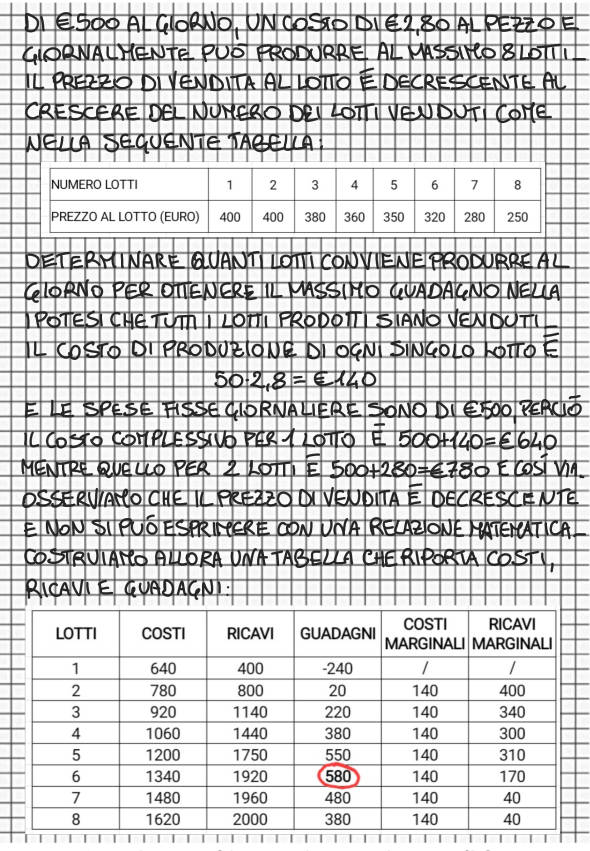 DI €500 AL GIORNO, UN COSTO DI €2,80 AL PEZZO E
GIORNALMENTE PUÒ PRODURRE AL MASSIMO 8 LOTTI_
IL PREZZO DI VENDITA AL LOTTO È DECRESCENTE AL
CRESCERE DEL NUMERO DEI LOTTI VENDUTI COME
NELLA SEGUENTE TABELLA:
NUMERO LOTTI 1 2 3 4 5 6 7 8
PREZZO AL LOTTO (EURO) 400 400 380 360 350 320 280 250
DETERMINARE QUANTI LOTTI CONVIENE PRODURRE AL
GIORNO PER OTTENERE IL MASSIMO GUADAGNO NELLA
IPOTESI CHE TUTTI I LOTTI PRODOTTI SIANO VENDUTI_
IL COSTO DI PRODUZIONE DI OGNI SINGOLO LOTTO È
50·2,8=€140
E LE SPESE FISSE GIORNALIERE SONO DI €500, PERCIÒ
IL COSTO COMPLESSIVO PER 1 LOTTO È 500+140=€640
MENTRE QUELLO PER 2 LOTTI È 500+280=€780 E COSÌ VIA.
OSSERVIAMO CHE IL PREZZO DI VENDITA È DECRESCENTE
E NON SI PUÒ ESPRIMERE CON UNA RELAZIONE MATEMATICA_
COSTRUIAMO ALLORA UNA TABELLA CHE RIPORTA COSTI,
RICAVI E GUADAGNI:
LOTTI COSTI RICAVI GUADAGNI COSTI MARGINALI RICAVI MARGINALI
1 640 400 -240 / /
2 780 800 20 140 400
3 920 1140 220 140 340
4 1060 1440 380 140 300
5 1200 1750 550 140 310
6 1340 1920 580 140 170
7 1480 1960 480 140 40
8 1620 2000 380 140 40